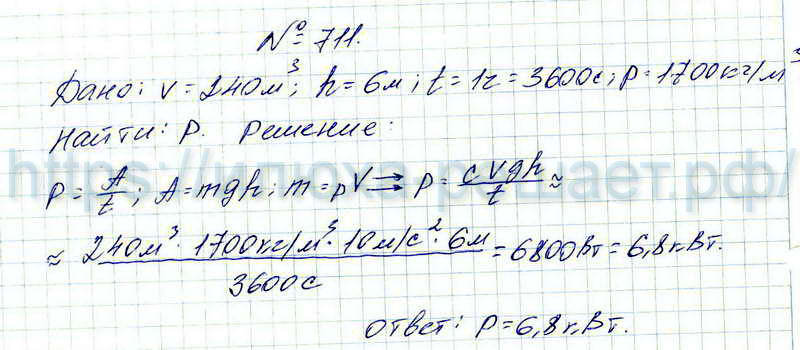 № 711.
Дано: V = 240м³; h = 6м; t = 1ч = 3600с; ρ = 1700кг/м³
Найти: P. Решение:
P = A/t; A = mgh; m = ρV ⇒ P = cVgh/t ≈
≈ 240м³ · 1700кг/м³ · 10м/с² · 6м / 3600с = 6800Вт = 6,8кВт.
Ответ: P = 6,8кВт.